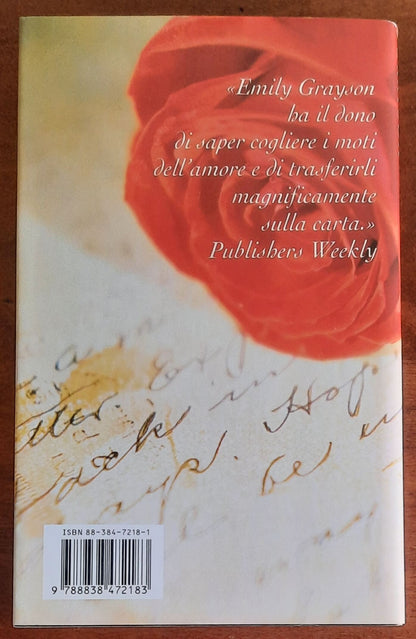 «Emily Grayson
ha il dono
di saper cogliere i moti
dell'amore e di trasferirli
magnificamente
sulla carta.»
Publishers Weekly
in
Hop
ack
be
ISBN 88-384-7218-1
9 788838 472183